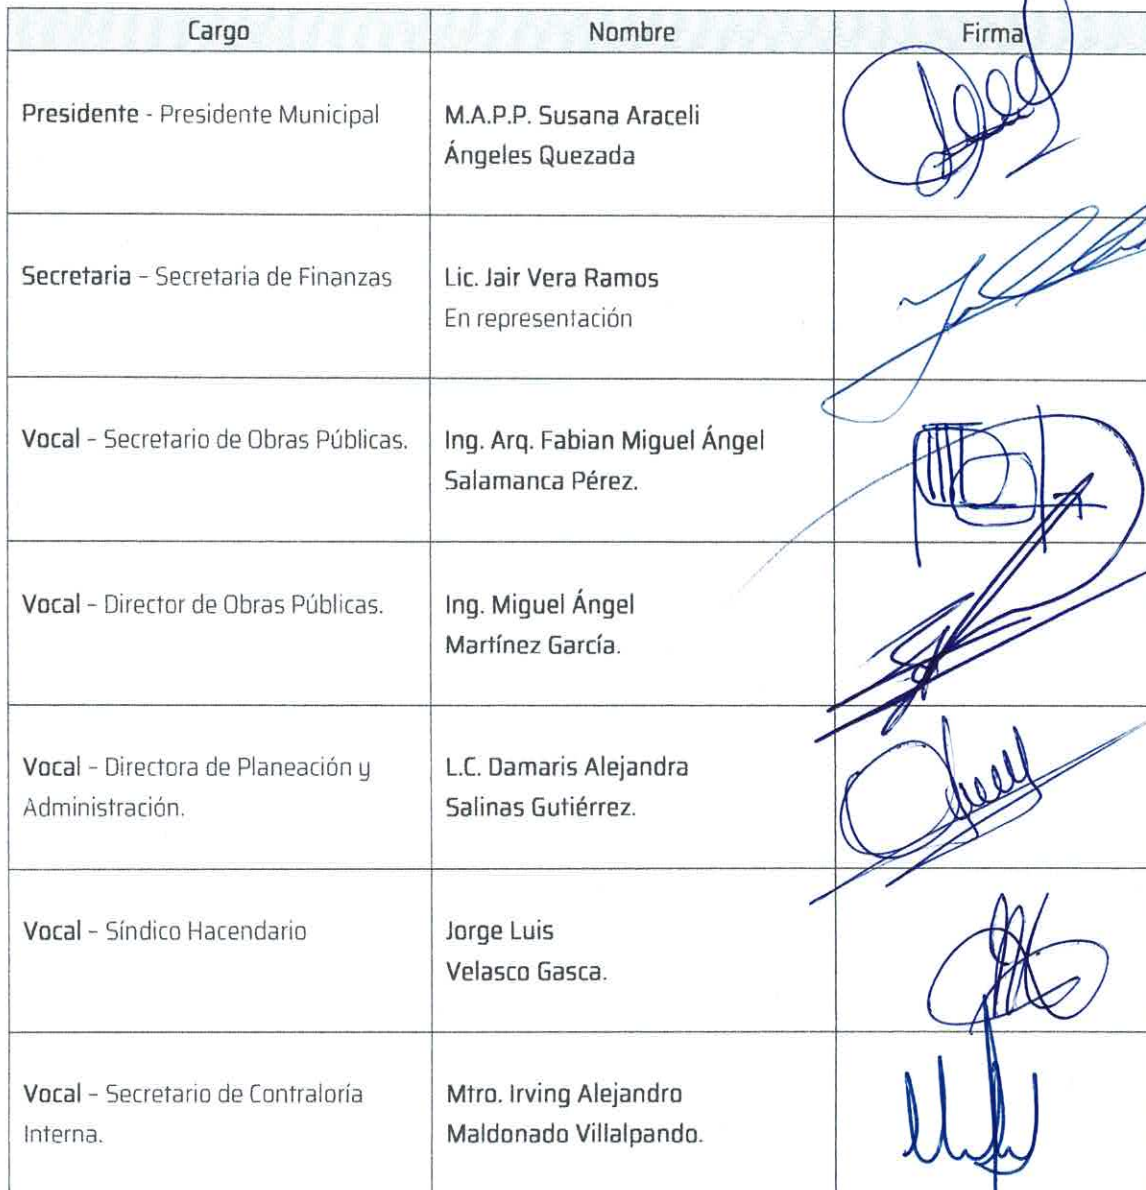 Cargo Nombre Firma
Presidente - Presidente Municipal M.A.P.P. Susana Araceli
Ángeles Quezada
Secretaria – Secretaria de Finanzas Lic. Jair Vera Ramos
En representación
Vocal – Secretario de Obras Públicas. Ing. Arq. Fabian Miguel Ángel
Salamanca Pérez.
Vocal – Director de Obras Públicas. Ing. Miguel Ángel
Martínez García.
Vocal – Directora de Planeación y L.C. Damaris Alejandra
Administración. Salinas Gutiérrez.
Vocal – Síndico Hacendario Jorge Luis
Velasco Gasca.
Vocal – Secretario de Contraloría Mtro. Irving Alejandro
Interna. Maldonado Villalpando.